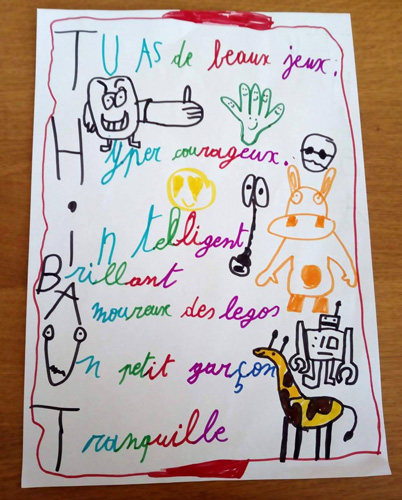 TU AS de beaux jeux.
Hyper courageux.
intelligent
Brillant
Amoureux des legos
Un petit garçon
Tranquille